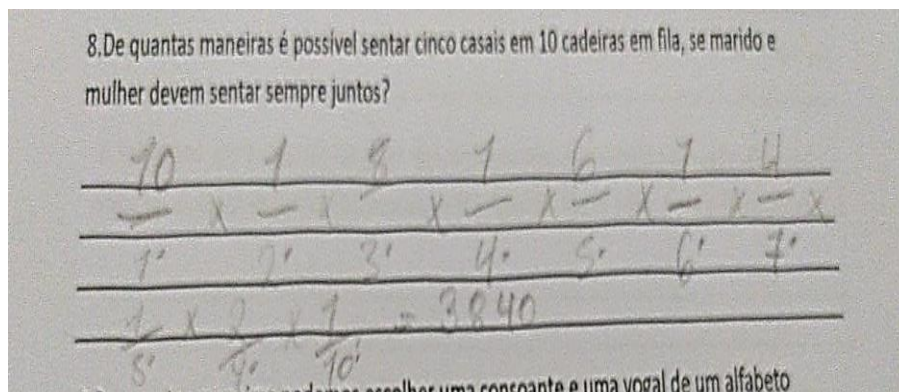 8.De quantas maneiras é possível sentar cinco casais em 10 cadeiras em fila, se marido e
mulher devem sentar sempre juntos?
10 1 8 1 6 1 4
— x — x x — x — x — x — x
1° 2° 3° 4° 5° 6° 7°
1 x 2 x 1 = 3840
8° 9° 10°
escolher uma consoante e uma vogal de um alfabeto